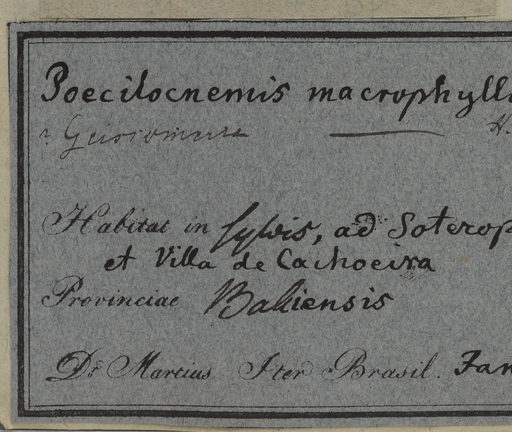 Poecilocnemis macrophyll
H.
Habitat in sylvis, ad Soterop
et Villa de Cachoeira
Provinciae Bahiensis
Dr Martius Iter Brasil. Jan